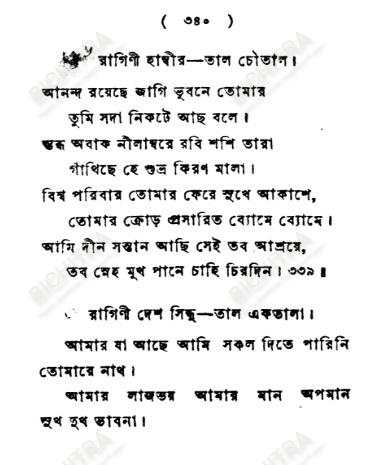 ( ৩৪০ )
রাগিণী হাম্বীর—তাল চৌতাল।
আনন্দ রয়েছে জাগি ভুবনে তোমার
তুমি সদা নিকটে আছ বলে।
স্তব্ধ অবাক নীলাম্বরে রবি শশি তারা
গাঁথিছে হে শুভ্র কিরণ মালা।
বিশ্ব পরিবার তোমার ফেরে সুখে আকাশে,
তোমার ক্রোড় প্রসারিত ব্যোমে ব্যোমে।
আমি দীন সন্তান আছি সেই তব আশ্রয়ে,
তব স্নেহ মুখ পানে চাহি চিরদিন। ৩৩৯॥
রাগিণী দেশ সিন্ধু—তাল একতালা।
আমার যা আছে আমি সকল দিতে পারিনি
তোমারে নাথ।
আমার লাজভয় আমার মান অপমান
সুখ দুখ ভাবনা।